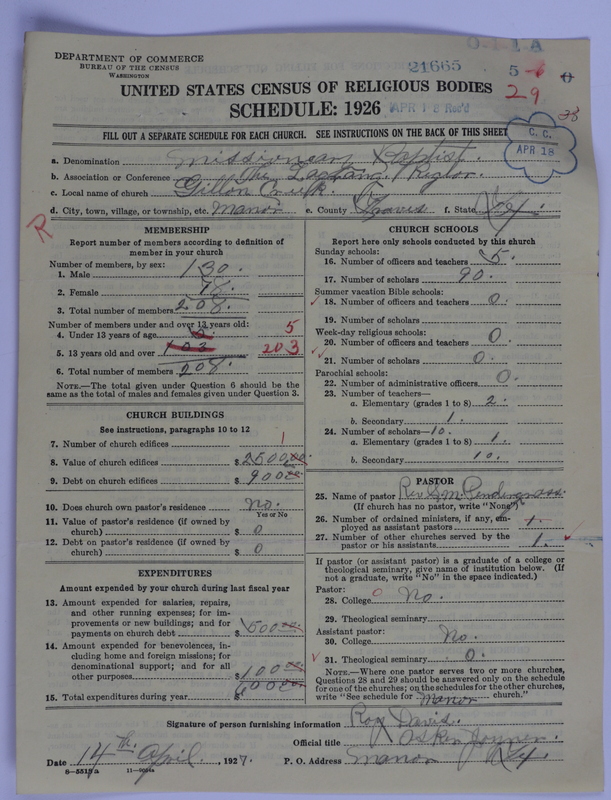 DEPARTMENT OF COMMERCE
BUREAU OF THE CENSUS
WASHINGTON
O-1-1 A
21665
5
0
UNITED STATES CENSUS OF RELIGIOUS BODIES
29
SCHEDULE: 1926
APR 18 Rec'd
FILL OUT A SEPARATE SCHEDULE FOR EACH CHURCH. SEE INSTRUCTIONS ON THE BACK OF THIS SHEET
C. C.
APR 18
a. Denomination Missionary Baptist.
b. Association or Conference The
c. Local name of church Gillon Creek.
d. City, town, village, or township, etc. Manor e. County Travis f. State Tex.
R
MEMBERSHIP
Report number of members according to definition of
member in your church
Number of members, by sex:
1. Male 130.
2. Female 78.
3. Total number of members 208.
Number of members under and over 13 years old:
4. Under 13 years of age 5
5. 13 years old and over 103 203
6. Total number of members 208.
NOTE.—The total given under Question 6 should be the
same as the total of males and females given under Question 3.
CHURCH BUILDINGS
See instructions, paragraphs 10 to 12
7. Number of church edifices 1
8. Value of church edifices $ 2500.00
9. Debt on church edifices $ 900.00
10. Does church own pastor's residence No.
Yes or No
11. Value of pastor's residence (if owned by
church) $ 0
12. Debt on pastor's residence (if owned by
church) $ 0
EXPENDITURES
Amount expended by your church during last fiscal year
13. Amount expended for salaries, repairs,
and other running expenses; for im-
provements or new building; and for
payments on church debt $ 500.00
14. Amount expended for benevolences, in-
cluding home and foreign missions; for
denominational support; and for all
other purposes $ 100.00
15. Total expenditures during year $ 600.00
CHURCH SCHOOLS
Report here only schools conducted by this church
Sunday schools:
16. Number of officers and teachers 5.
17. Number of scholars 90.
Summer vacation Bible schools:
18. Number of officers and teachers 0.
19. Number of scholars
Week-day religious schools:
20. Number of officers and teachers 0
21. Number of scholars 0.
Parochial schools:
22. Number of administrative officers 0.
23. Number of teachers—
a. Elementary (grades 1 to 8) 2.
b. Secondary 1.
24. Number of scholars—10.
a. Elementary (grades 1 to 8) 1.
b. Secondary 10.
PASTOR
25. Name of pastor Rev. S. M. Pendergrass.
(If church has no pastor, write "None")
26. Number of ordained ministers, if any, em-
ployed as assistant pastors 1.
27. Number of other churches served by the
pastor or his assistants 1.
If pastor (or assistant pastor) is a graduate of a college or
theological seminary, give name of institution below. (If
not a graduate, write "No" in the space indicated.)
Pastor:
28. College 0 No.
29. Theological seminary
Assistant pastor:
30. College No.
31. Theological seminary 0.
NOTE.—Where one pastor serves two or more churches,
Questions 28 and 29 should be answered only on the schedule
for one of the churches; on the schedules for the other churches,
write "See schedule for Manor church."
Signature of person furnishing information Roy David.
Official title
Date 14th. April, 1927. P. O. Address Manor Tex
8—5513a 11—9034a